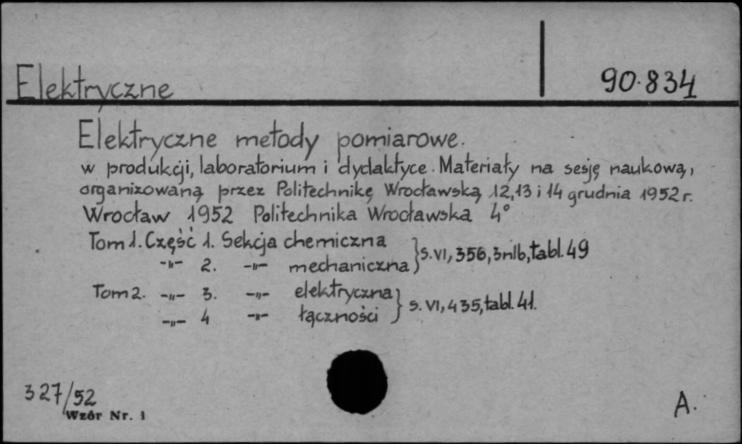 Elektryczne
90.834
Elektryczne metody pomiarowe.
w produkcji, laboratorium i dydaktyce. Materiały na sesję naukową,
organizowaną przez Politechnikę Wrocławską 12,13 i 14 grudnia 1952 r.
Wrocław 1952 Politechnika Wrocławska 4°
Tom 1. Część 1. Sekcja chemiczna
-"- 2. -"- mechaniczna } s. VI, 356, 3nlb, tabl. 49
Tom 2. -"- 3. -"- elektryczna
-"- 4 -"- łączności } s. VI, 435, tabl. 41.
327/52
Wzór Nr. 1
A.